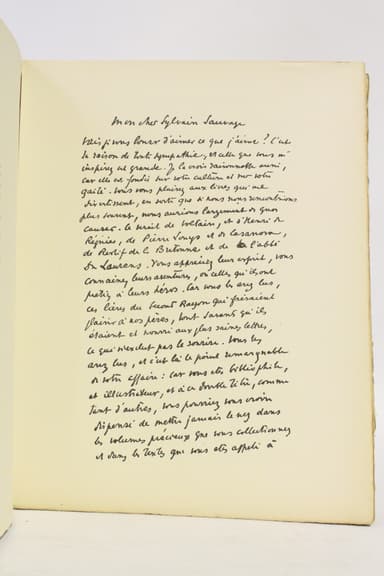 Mon cher Sylvain Sauvage
Vais-je vous louer d'aimer ce que j'aime ? C'est
la raison de toute sympathie, et celle que vous m'
inspirez est grande. Je la crois raisonnable aussi,
car elle est fondée sur votre culture et sur votre
gaîté. Vous vous plaisez aux livres qui me
divertissent, en sorte que si nous nous rencontrions
plus souvent, nous aurions largement de quoi
causer. Ce serait de Voltaire, et d'Henri de
Régnier, de Pierre Louys et de Casanova,
de Restif de la Bretonne et de l'abbé
du Laurens. Vous appréciez leur esprit, vous
connaissez leurs aventures, ou celles qu'ils ont
prêtées à leurs héros. Car vous les avez lus,
ces livres du Second Rayon que faisaient
plaisir à nos pères, tout savants qu'ils
étaient et nourris aux plus saines lettres,
ce qui n'exclut pas le sourire. Vous les
avez lus, et c'est là le point remarquable
de votre affaire : car vous êtes bibliophile,
et illustrateur, et à ce double titre, comme
tant d'autres, vous pourriez vous croire
dispensé de mettre jamais le nez dans
les volumes précieux que vous collectionnez
et dans les textes que vous êtes appelé à